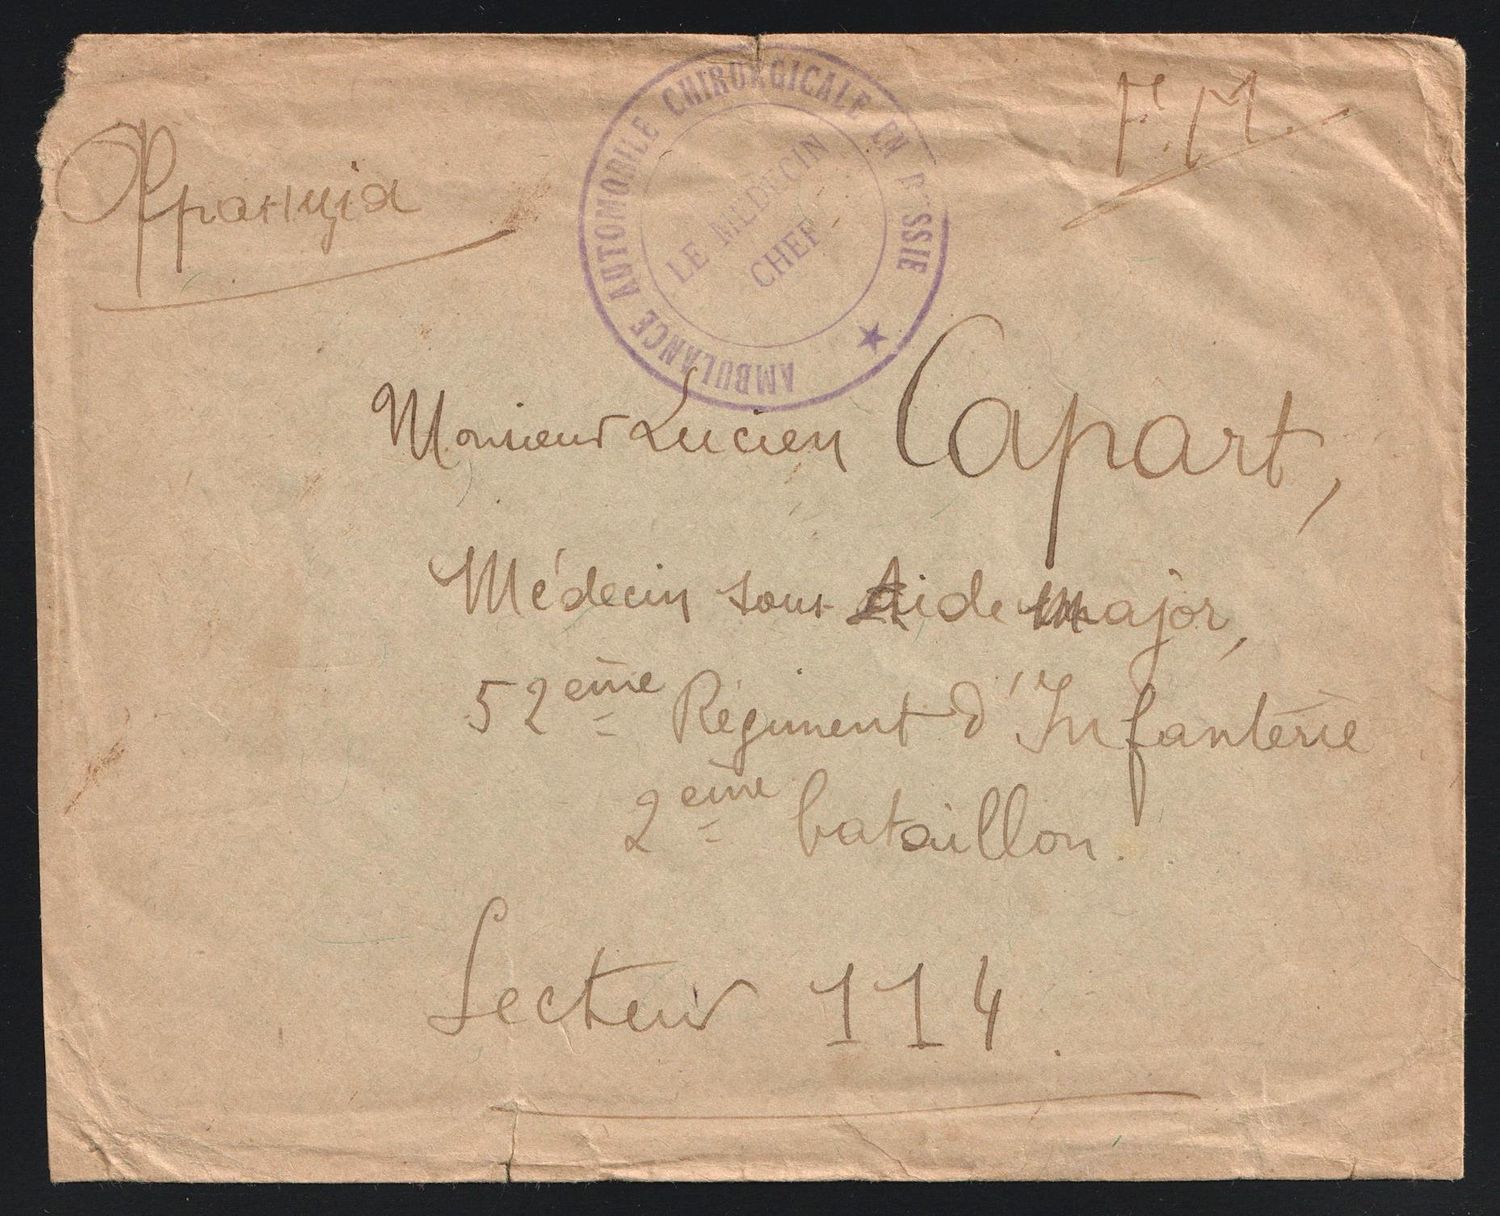 Франція
F.M.
AMBULANCE AUTOMOBILE CHIRURGICALE EN RUSSIE
LE MEDECIN
CHEF
Monsieur Lucien Capart,
Médecin sous Aide major,
52ème Régiment d'Infanterie
2ème bataillon.
Secteur 114.